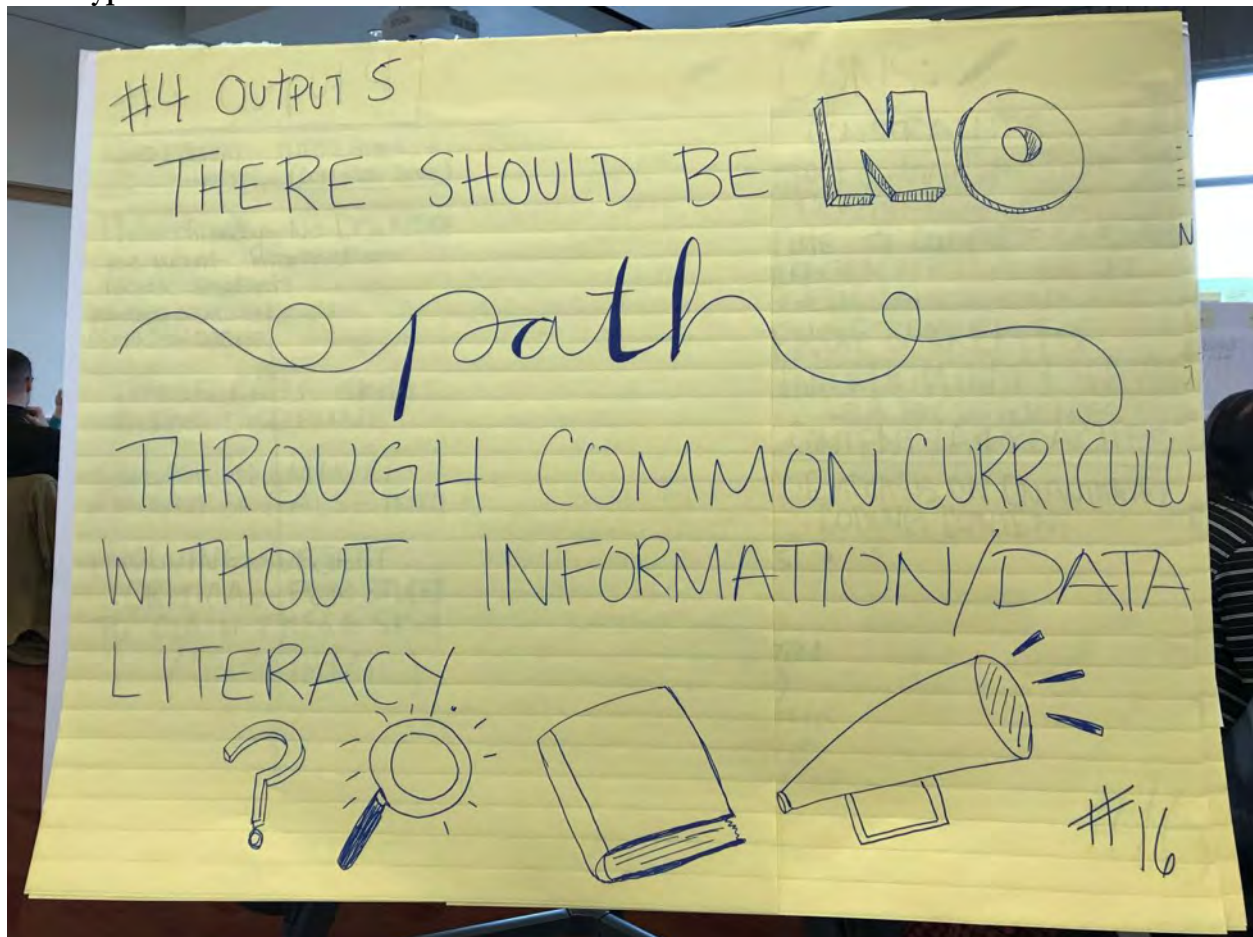 #4 OUTPUT 5
THERE SHOULD BE NO
path
THROUGH COMMON CURRICULU
WITHOUT INFORMATION/DATA
LITERACY.
?
#16